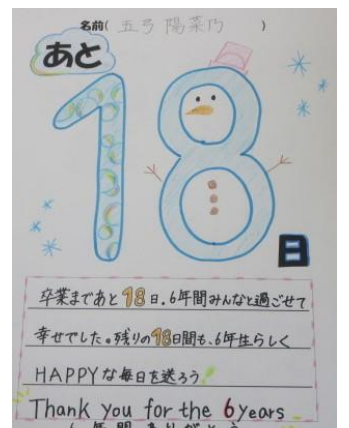 名前( 五弓 陽菜乃 )
あと
18
日
卒業まであと18日。6年間みんなと過ごせて
幸せでした。残りの18日間も、6年生らしく
HAPPYな毎日を送ろう!
Thank you for the 6years
6年間ありがとう